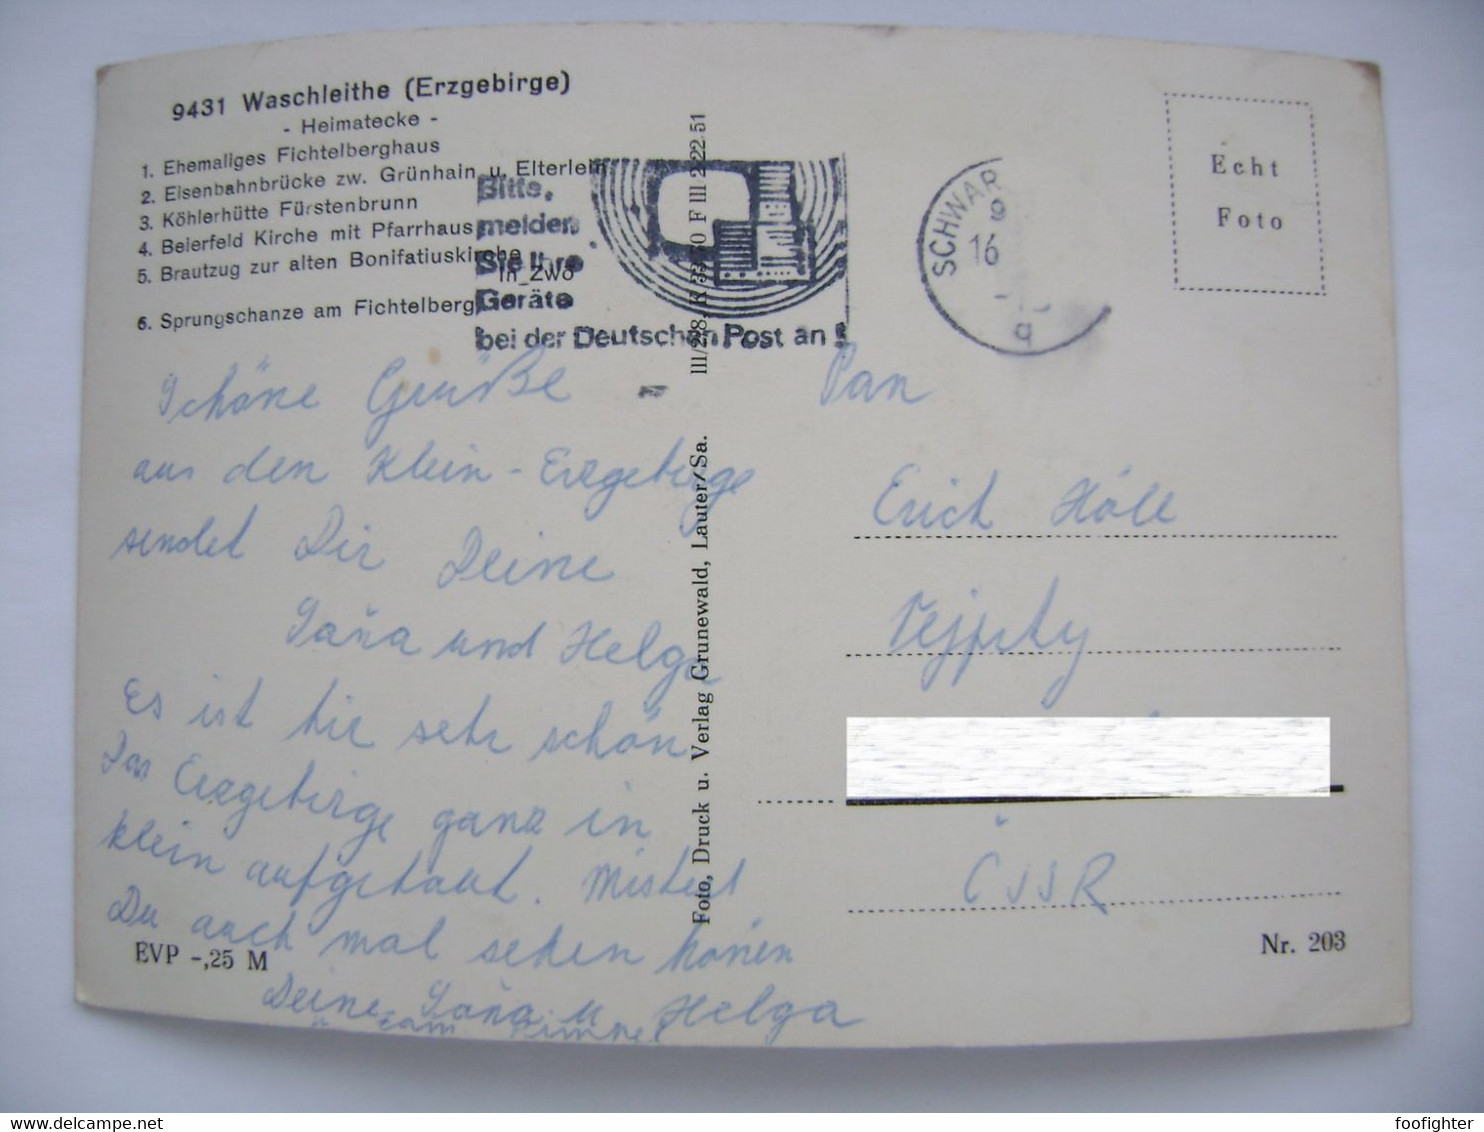 9431 Waschleithe (Erzgebirge)
- Heimatecke -
1. Ehemaliges Fichtelberghaus
2. Eisenbahnbrücke zw. Grünhain u. Elterlein
3. Köhlerhütte Fürstenbrunn
4. Beierfeld Kirche mit Pfarrhaus
5. Brautzug zur alten Bonifatiuskirche
in_Zwö
6. Sprungschanze am Fichtelberg
Bitte,
melden
Sie Ihre
Geräte
bei der Deutschen Post an!
SCHWAR
9
16
a
Echt
Foto
Schöne Grüße
aus den Klein-Erzgebirge
sendet Dir Deine
Jaňa und Helga
Es ist hie sehr schön
Das Erzgebirge ganz in
klein aufgebaut. Mistest
Du auch mal sehen könen
Deine Jaňa u Helga
EVP -,25 M
III/2/8, K 33/70 F III 2122 51
Foto, Druck u. Verlag Grunewald, Lauter/Sa.
Pan
Erich Höll
Vejprty
ČSSR
Nr. 203
www.delcampe.net
foofighter